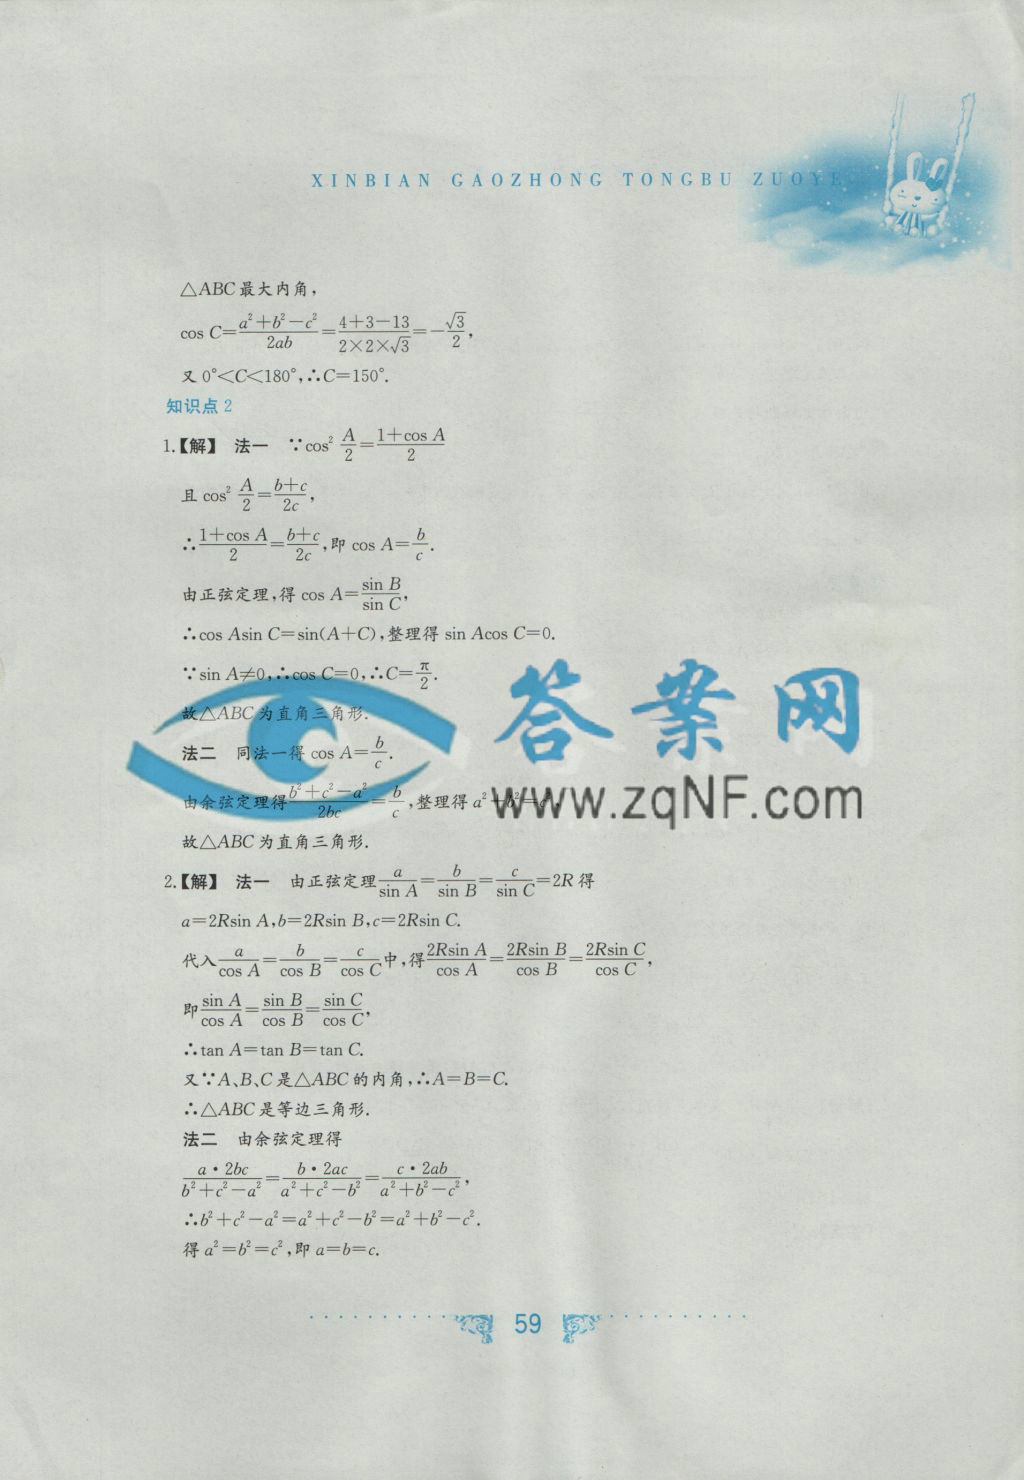 XINBIAN GAOZHONG TONGBU ZUOYE
△ABC最大内角,
cos C=\frac{a²+b²-c²}{2ab}=\frac{4+3-13}{2×2×√3}=-\frac{√3}{2},
又0°<C<180°,∴C=150°.
知识点2
1.【解】 法一 ∵cos² \frac{A}{2}=\frac{1+cos A}{2}
且 cos² \frac{A}{2}=\frac{b+c}{2c},
∴\frac{1+cos A}{2}=\frac{b+c}{2c},即 cos A=\frac{b}{c}.
由正弦定理,得 cos A=\frac{sin B}{sin C},
∴cos Asin C=sin(A+C),整理得 sin Acos C=0.
∵sin A≠0,∴cos C=0,∴C=\frac{π}{2}.
故△ABC为直角三角形.
法二 同法一得 cos A=\frac{b}{c}.
由余弦定理得\frac{b²+c²-a²}{2bc}=\frac{b}{c},整理得 a²+b²=c².
故△ABC为直角三角形.
答案网
www.zqNF.com
2.【解】 法一 由正弦定理\frac{a}{sin A}=\frac{b}{sin B}=\frac{c}{sin C}=2R得
a=2Rsin A,b=2Rsin B,c=2Rsin C.
代入\frac{a}{cos A}=\frac{b}{cos B}=\frac{c}{cos C}中,得\frac{2Rsin A}{cos A}=\frac{2Rsin B}{cos B}=\frac{2Rsin C}{cos C},
即\frac{sin A}{cos A}=\frac{sin B}{cos B}=\frac{sin C}{cos C},
∴tan A=tan B=tan C.
又∵A、B、C是△ABC的内角,∴A=B=C.
∴△ABC是等边三角形.
法二 由余弦定理得
\frac{a·2bc}{b²+c²-a²}=\frac{b·2ac}{a²+c²-b²}=\frac{c·2ab}{a²+b²-c²},
∴b²+c²-a²=a²+c²-b²=a²+b²-c².
得 a²=b²=c²,即 a=b=c.
59